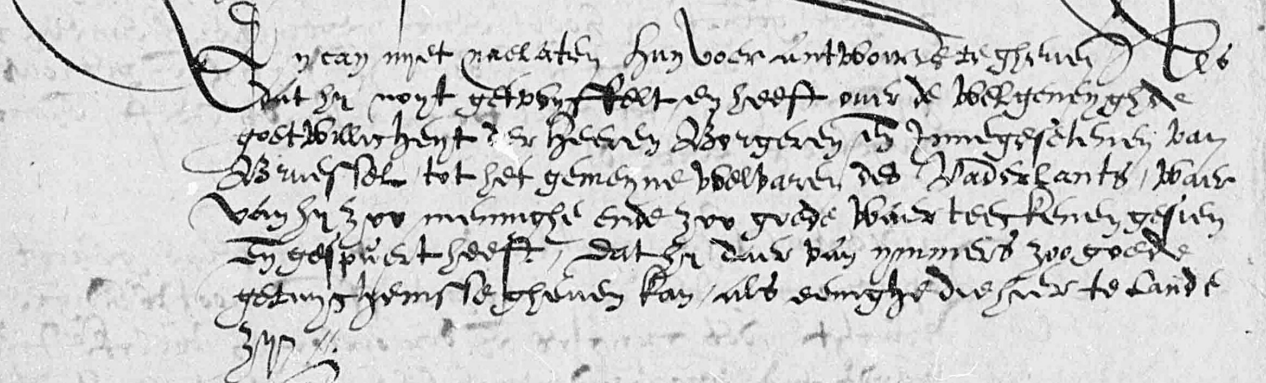 En can nyet naelaten hun voer antwoirde te gheven Als
dat hy noyt getwyffelt en heeft over de welgeneyghde
goetwillicheyt der heeren Borgeren en Innegesetenen van
Bruessel tot het gemeyne welvaren des Vaderlants, waer
van hy zoo menighe ende zoo goede waerteeckenen gesien
en gespuert heeft, dat hy daer van ymmers zoo goede
getuyghenisse gheven kan, als eenighe die hier te Lande
zyn